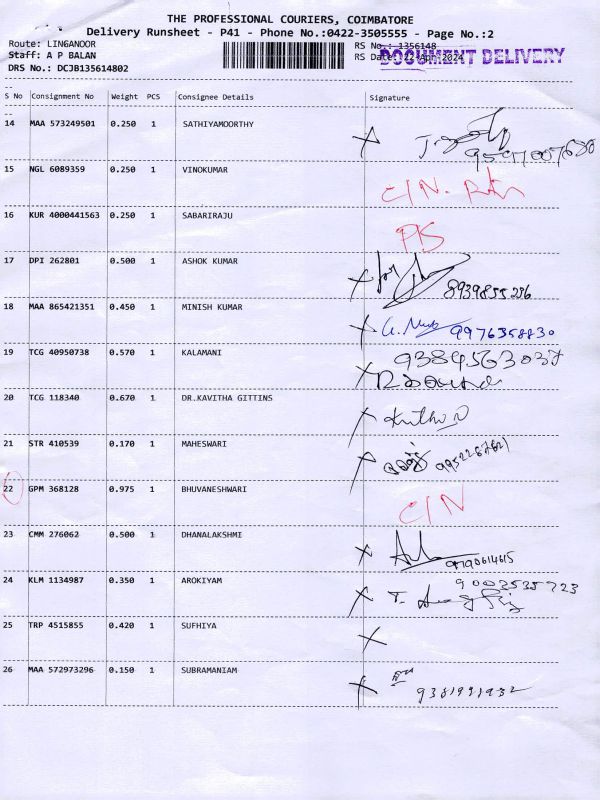 THE PROFESSIONAL COURIERS, COIMBATORE
Delivery Runsheet - P41 - Phone No.:0422-3505555 - Page No.:2
Route: LINGANOOR RS No.: 1356148
Staff: A P BALAN RS Date: 22-Apr-2024 DOCUMENT DELIVERY
DRS No.: DCJB135614802
S No Consignment No Weight PCS Consignee Details Signature
14 MAA 573249501 0.250 1 SATHIYAMOORTHY
15 NGL 6089359 0.250 1 VINOKUMAR C/N.
16 KUR 4000441563 0.250 1 SABARIRAJU P/S
17 DPI 262801 0.500 1 ASHOK KUMAR 8939855236
18 MAA 865421351 0.450 1 MINISH KUMAR 9976358830
19 TCG 40950738 0.570 1 KALAMANI 9384563037
20 TCG 118340 0.670 1 DR.KAVITHA GITTINS
21 STR 410539 0.170 1 MAHESWARI
22 GPM 368128 0.975 1 BHUVANESHWARI C/N
23 CMM 276062 0.500 1 DHANALAKSHMI 9790614615
24 KLM 1134987 0.350 1 AROKIYAM 9003535723
25 TRP 4515855 0.420 1 SUFHIYA
26 MAA 572973296 0.150 1 SUBRAMANIAM